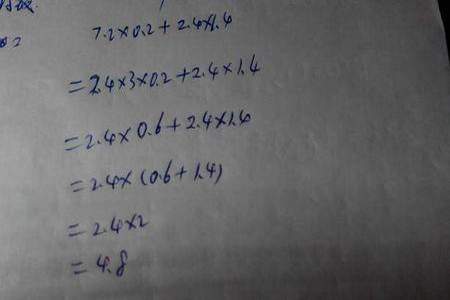 7.2×0.2+2.4×1.4
=2.4×3×0.2+2.4×1.4
=2.4×0.6+2.4×1.4
=2.4×(0.6+1.4)
=2.4×2
=4.8